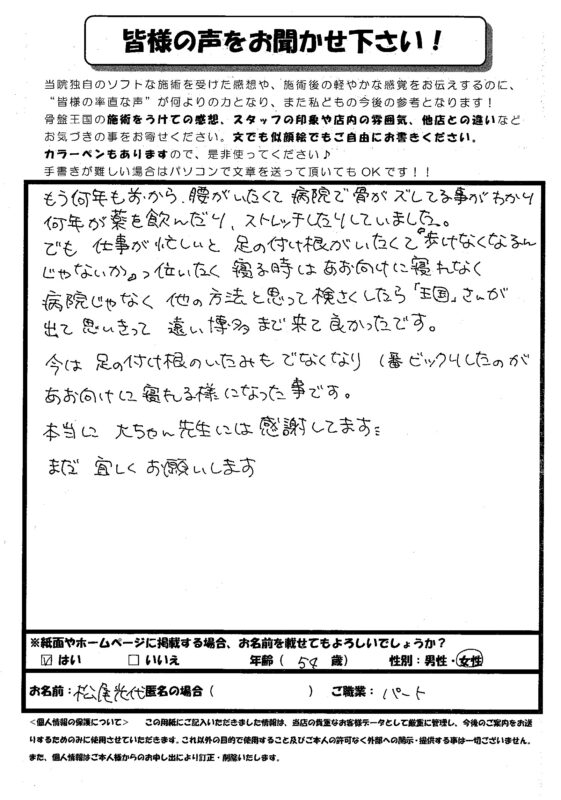 皆様の声をお聞かせ下さい！
当院独自のソフトな施術を受けた感想や、施術後の軽やかな感覚をお伝えするのに、
“皆様の率直な声”が何よりの力となり、また私どもの今後の参考となります！
骨盤王国の施術をうけての感想、スタッフの印象や店内の雰囲気、他店との違いなど
お気づきの事をお寄せください。文でも似顔絵でもご自由にお書きください。
カラーペンもありますので、是非使ってください♪
手書きが難しい場合はパソコンで文章を送って頂いてもOKです！！
もう何年もまえから、腰がいたくて 病院で骨がズレてる事がわかり
何年か薬を飲んだり、ストレッチしたりしていました。
でも 仕事が忙しいと 足の付け根がいたくて『歩けなくなるん
じゃないか』って位いたく 寝る時はあお向けに寝れなく
病院じゃなく 他の方法と思って検さくしたら「王国」さんが
出て 思いきって 遠い博多まで来て良かったです。
今は 足の付け根のいたみも でなくなり 1番ビックリしたのが
あお向けに寝れる様になった事です。
本当に 大ちゃん先生には感謝してます
まだ 宜しく お願いします
※紙面やホームページに掲載する場合、お名前を載せてもよろしいでしょうか？
☑ はい □ いいえ 年齢（ 54 歳） 性別：男性・女性
お名前：松尾 代 匿名の場合（ ） ご職業：パート
＜個人情報の保護について＞ この用紙にご記入いただきました情報は、当店の貴重なお客様データとして厳重に管理し、今後のご案内をお送
りするためのみに使用させていただきます。これ以外の目的で使用すること及びご本人の許可なく外部への開示・提供する事は一切ございません。
また、個人情報はご本人様からのお申し出により訂正・削除いたします。